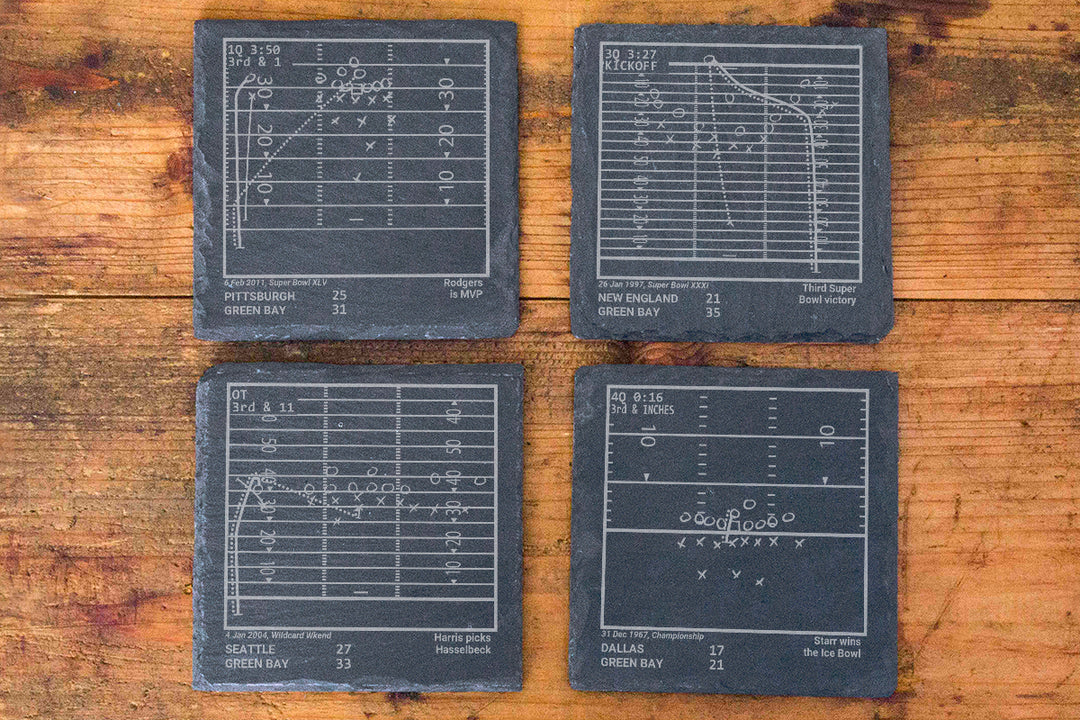 1Q 3:50
3rd & 1
30
30
20
20
10
10
6 Feb 2011, Super Bowl XLV
Rodgers
is MVP
PITTSBURGH 25
GREEN BAY 31
3Q 3:27
KICKOFF
40
50
40
30
20
10
26 Jan 1997, Super Bowl XXXI
Third Super
Bowl victory
NEW ENGLAND 21
GREEN BAY 35
OT
3rd & 11
40
50
50
40
40
30
30
20
20
10
10
4 Jan 2004, Wildcard Wkend
Harris picks
Hasselbeck
SEATTLE 27
GREEN BAY 33
4Q 0:16
3rd & INCHES
10
10
31 Dec 1967, Championship
Starr wins
the Ice Bowl
DALLAS 17
GREEN BAY 21